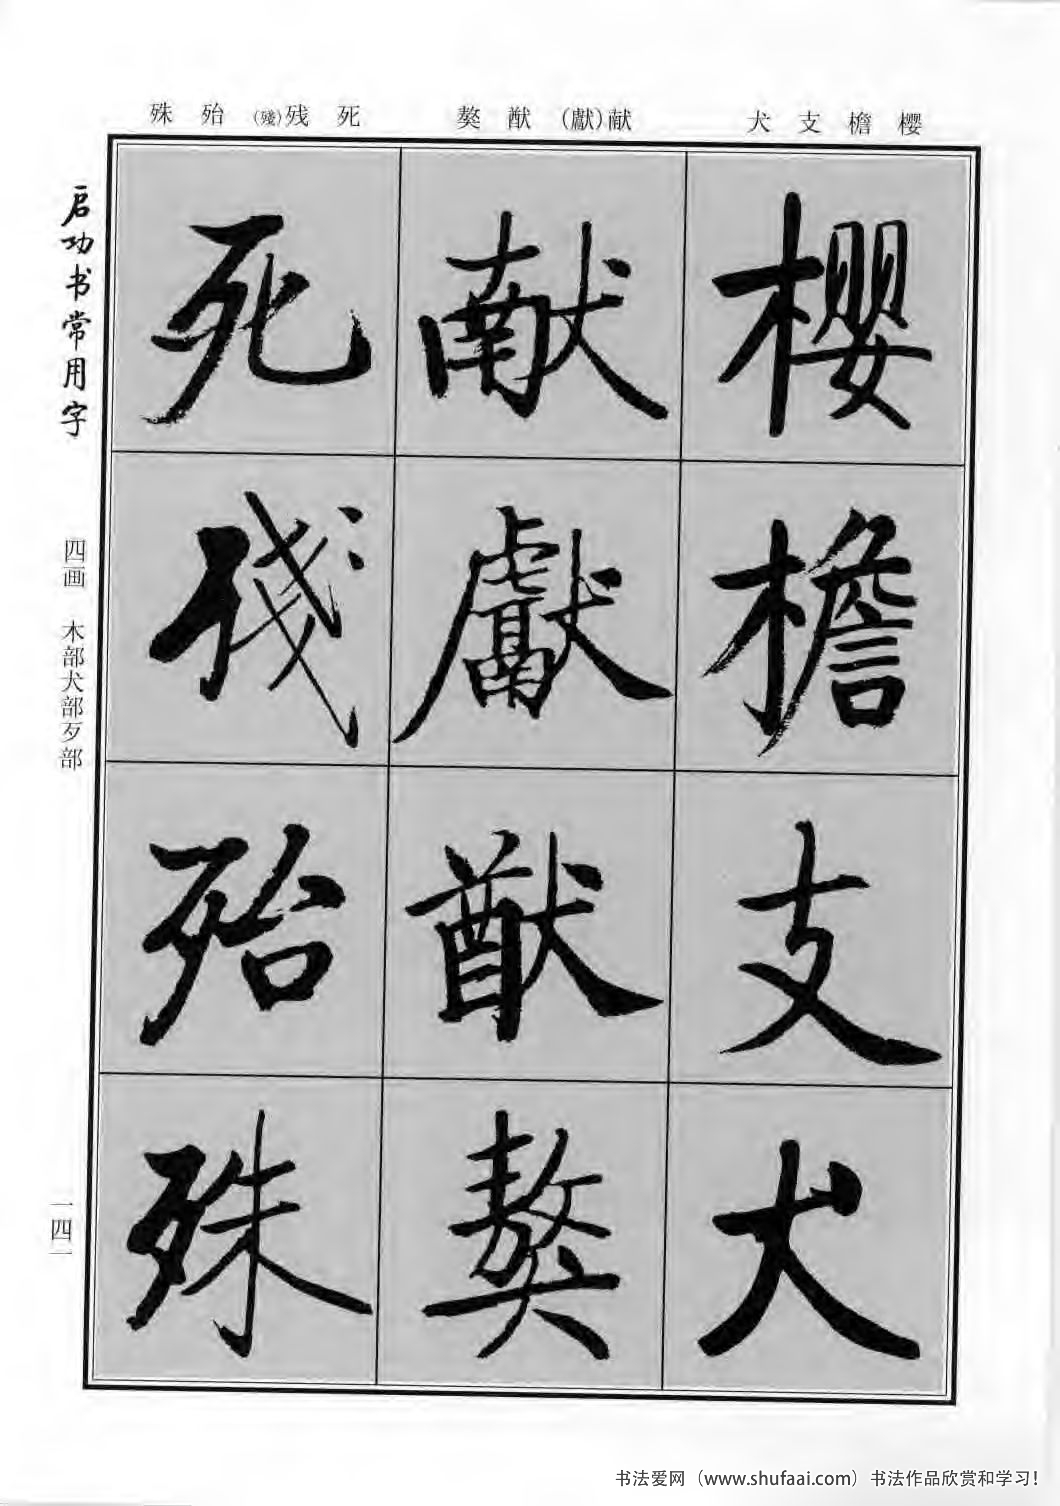 樱檐支犬
献(獻)猷獒
死残(殘)殆殊
樱
檐
支
犬
献
獻
猷
獒
死
残
殆
殊
启功书常用字
四画 木部犬部歹部
一四一
书法爱网（www.shufaai.com）书法作品欣赏和学习！